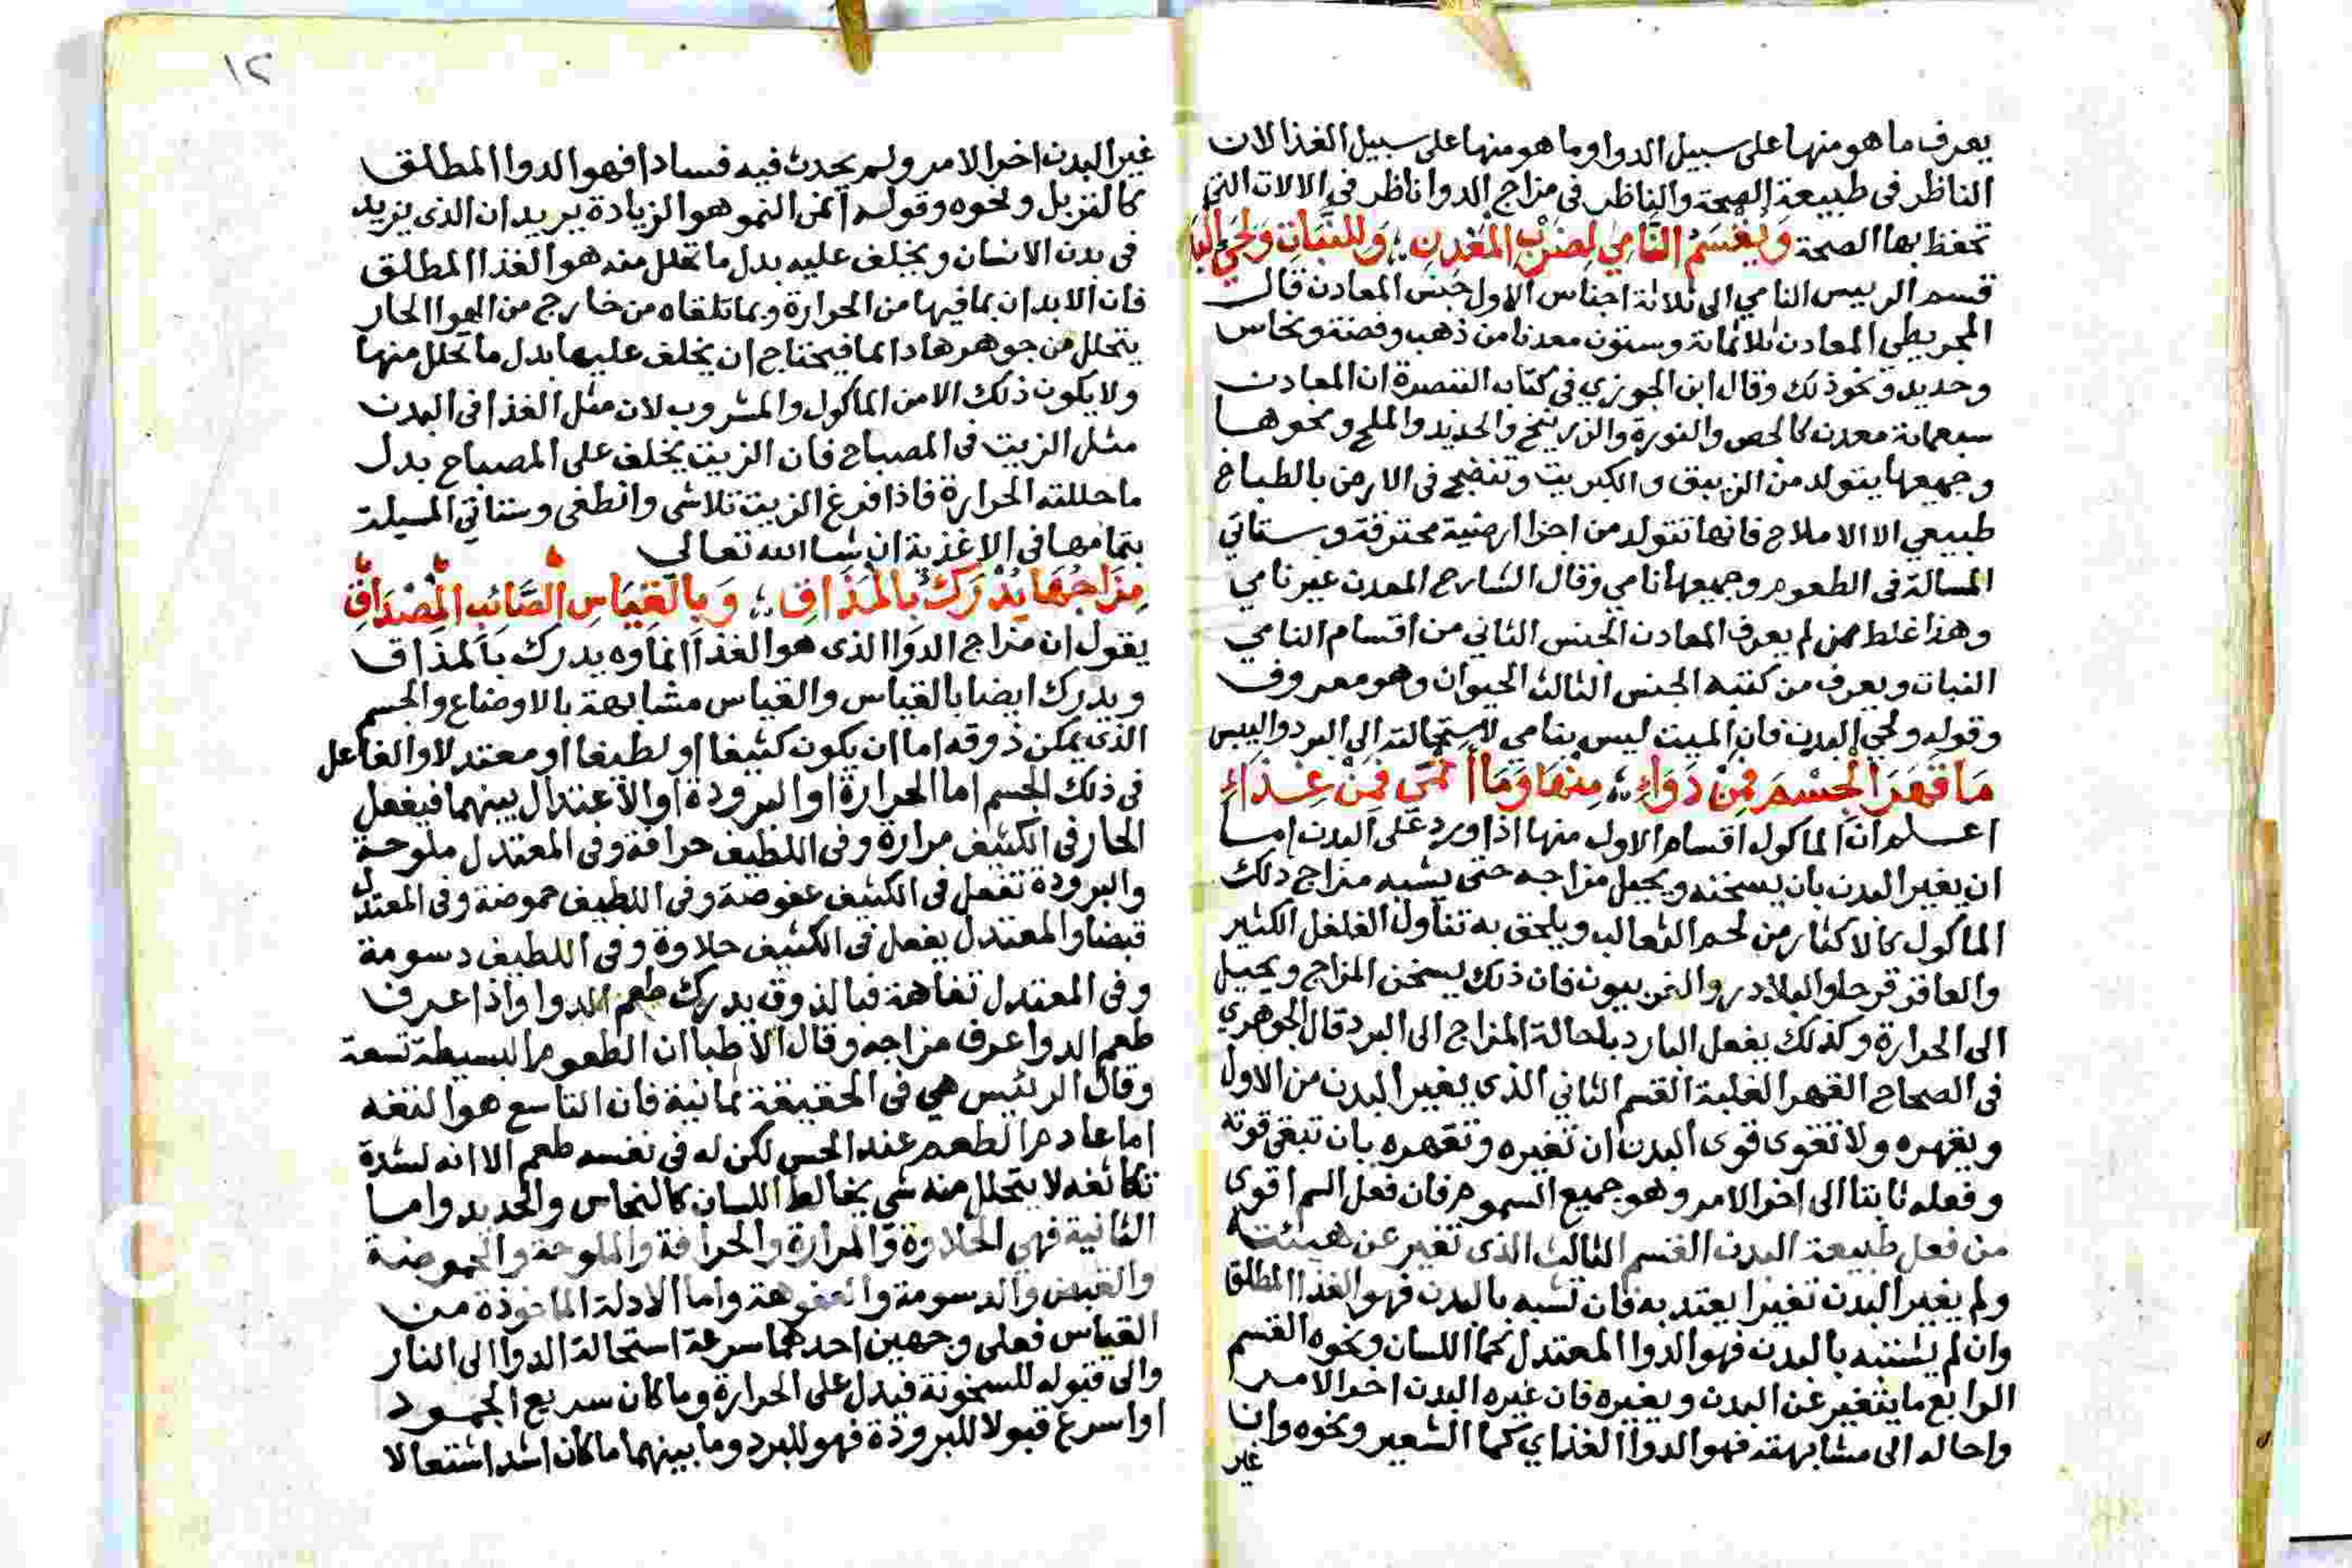 يعرف ما هو منها على سبيل الدوا وما هو منها على سبيل الغذا لان
الناظر فى طبيعة الصحة والناظر فى مزاج الدوا ناظر فى الالات التى
تحفظ بها الصحة وَيُقْسَمُ النَّامِي لِضَرْبِ المَعْدِنِ ؛ وَللنَّبَاتِ وَلِحَيِّ البَدَ
قسم الرييس النامي الى ثلاثة اجناس الاول جنس المعادن قال
المجريطي المعادن ثلاثماية وستون معدنا من ذهب وفضة ونحاس
وحديد ونحو ذلك وقال ابن الجوزي في كتابه التبصرة ان المعادن
سبعماية معدن كالجص والنورة والزرنيخ والحديد والملح ونحوها
وجميعها يتولد من الزيبق والكبريت وتنضج فى الارض بالطباخ
طبيعي الا الاملاح فانها تتولد من اجزا ارضية محترقة وستاتي
المسالة فى الطعوم وجميعها نامي وقال الشارح المعدن غير نامي
وهذا غلط ممن لم يعرف المعادن الجنس الثاني من اقسام النامي
النبات ويعرف من كتبه الجنس الثالث الحيوان وهو معروف
وقوله ولحي البدن فان الميت ليس بنامي لاستحالته الى البرد واليبس
مَا قَهَرَ الْجِسْمَ فَمِنْ دَوَاءِ ؛ مِنْهَا وَمَا أَنْمَى فَمِنْ غِذَاءِ
اعلم ان الماكول اقسام الاول منها اذا ورد على البدن اما
ان يغير البدن بان يسخنه ويحيل مزاجه حتى يشبه مزاج ذلك
الماكول كالاكثار من لحم الثعالب ويلحق به تناول الفلفل الكثير
والعاقر قرحا والبلادر والفربيون فان ذلك يسخن المزاج ويحيل
الى الحرارة وكذلك يفعل البارد باحالة المزاج الى البرد قال الجوهري
فى الصحاح القهر الغلبة القسم الثاني الذى يغير البدن من الاول
ويقهره ولا تقوى قوى البدن ان تغيره وتقهره بان تبقى قوته
وفعله ثابتا الى اخر الامر وهو جميع السموم فان فعل السم اقوى
من فعل طبيعة البدن القسم الثالث الذى تغير عن هيئته
ولم يغير البدن تغيرا يعتد به فان تشبه بالبدن فهو الغذا المطلق
وان لم يشتبه بالبدن فهو الدوا المعتدل كما اللسان ونحوه القسم
الرابع ما يتغير عن البدن ويغيره فان غيره البدن اخر الامر
واحاله الى مشابهته فهو الدوا الغذاي كما الشعير ونحوه وان
غير
١٢
غير البدن اخر الامر ولم يحدث فيه فسادا فهو الدوا المطلق
ونحوه وقوله انمى النمو هو الزيادة يريد ان الذى يزيد
فى بدن الانسان ويخلف عليه بدل ما تحلل منه هو الغذا المطلق
فان الابدان بما فيها من الحرارة وبما تلقاه من خارج من الهوا الحار
يتحلل من جوهرها دايما فيحتاج ان يخلف عليها بدل ما تحلل منها
ولا يكون ذلك الا من الماكول والمشروب لان مثل الغذا فى البدن
مثل الزيت فى المصباح فان الزيت يخلف على المصباح بدل
ما حللته الحرارة فاذا فرغ الزيت تلاشى وانطفى وستاتي المسيلة
بتمامها فى الاغذية ان شا الله تعالى
مِزَاجُهَا يُدْرَكُ بِالمَذَاقِ ؛ وَبِالقِيَاسِ الصَّائِبِ المِصْدَاقِ
يقول ان مزاج الدوا الذى هو الغذا انماوه يدرك بالمذاق
ويدرك ايضا بالقياس والقياس مشابهة بالاوضاع والجسم
الذي يمكن ذوقه اما ان يكون كثيفا او لطيفا او معتدلا والفاعل
فى ذلك الجسم اما الحرارة او البرودة او الاعتدال بينهما فيفعل
الحار فى الكثيف مرارة وفى اللطيف حرافة وفى المعتدل ملوحة
والبرودة تفعل فى الكثيف عفوصة وفى اللطيف حموضة وفى المعتدل
قبضا والمعتدل يفعل فى الكثيف حلاوة وفى اللطيف دسومة
وفى المعتدل تفاهة فبالذوق يدرك طعم الدوا واذا عرف
طعم الدوا عرف مزاجه وقال الاطبا ان الطعوم البسيطة تسعة
وقال الرئيس هي فى الحقيقة ثمانية فان التاسع هو التفه
اما عادم الطعم عند الحس لكن له فى نفسه طعم الا انه لشدة
تكاثفه لا يتحلل منه شي يخالط اللسان كالنحاس والحديد واما
الثانية فهي الحلاوة والمرارة والحرافة والملوحة والحموضة
والقبض والدسومة والعفوصة واما الادلة الماخوذة من
القياس فعلى وجهين احدهما سرعة استحالة الدوا الى النار
والى قبوله للسخونة فيدل على الحرارة وما كان سريع الجمود
او اسرع قبولا للبرودة فهو للبرد وما بينهما ما كان اشد اشتعالا